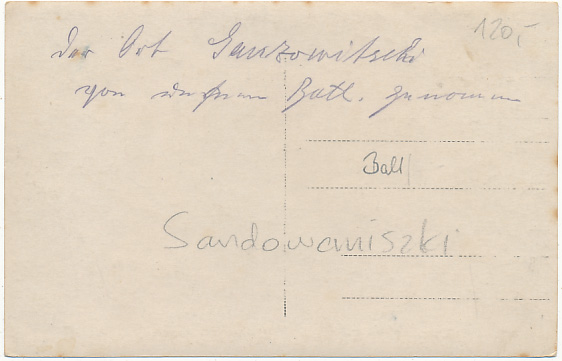 120,-
Der Ort Ganzowitschi
von unserem Batl. genommen
Ball
Sandowaniszki